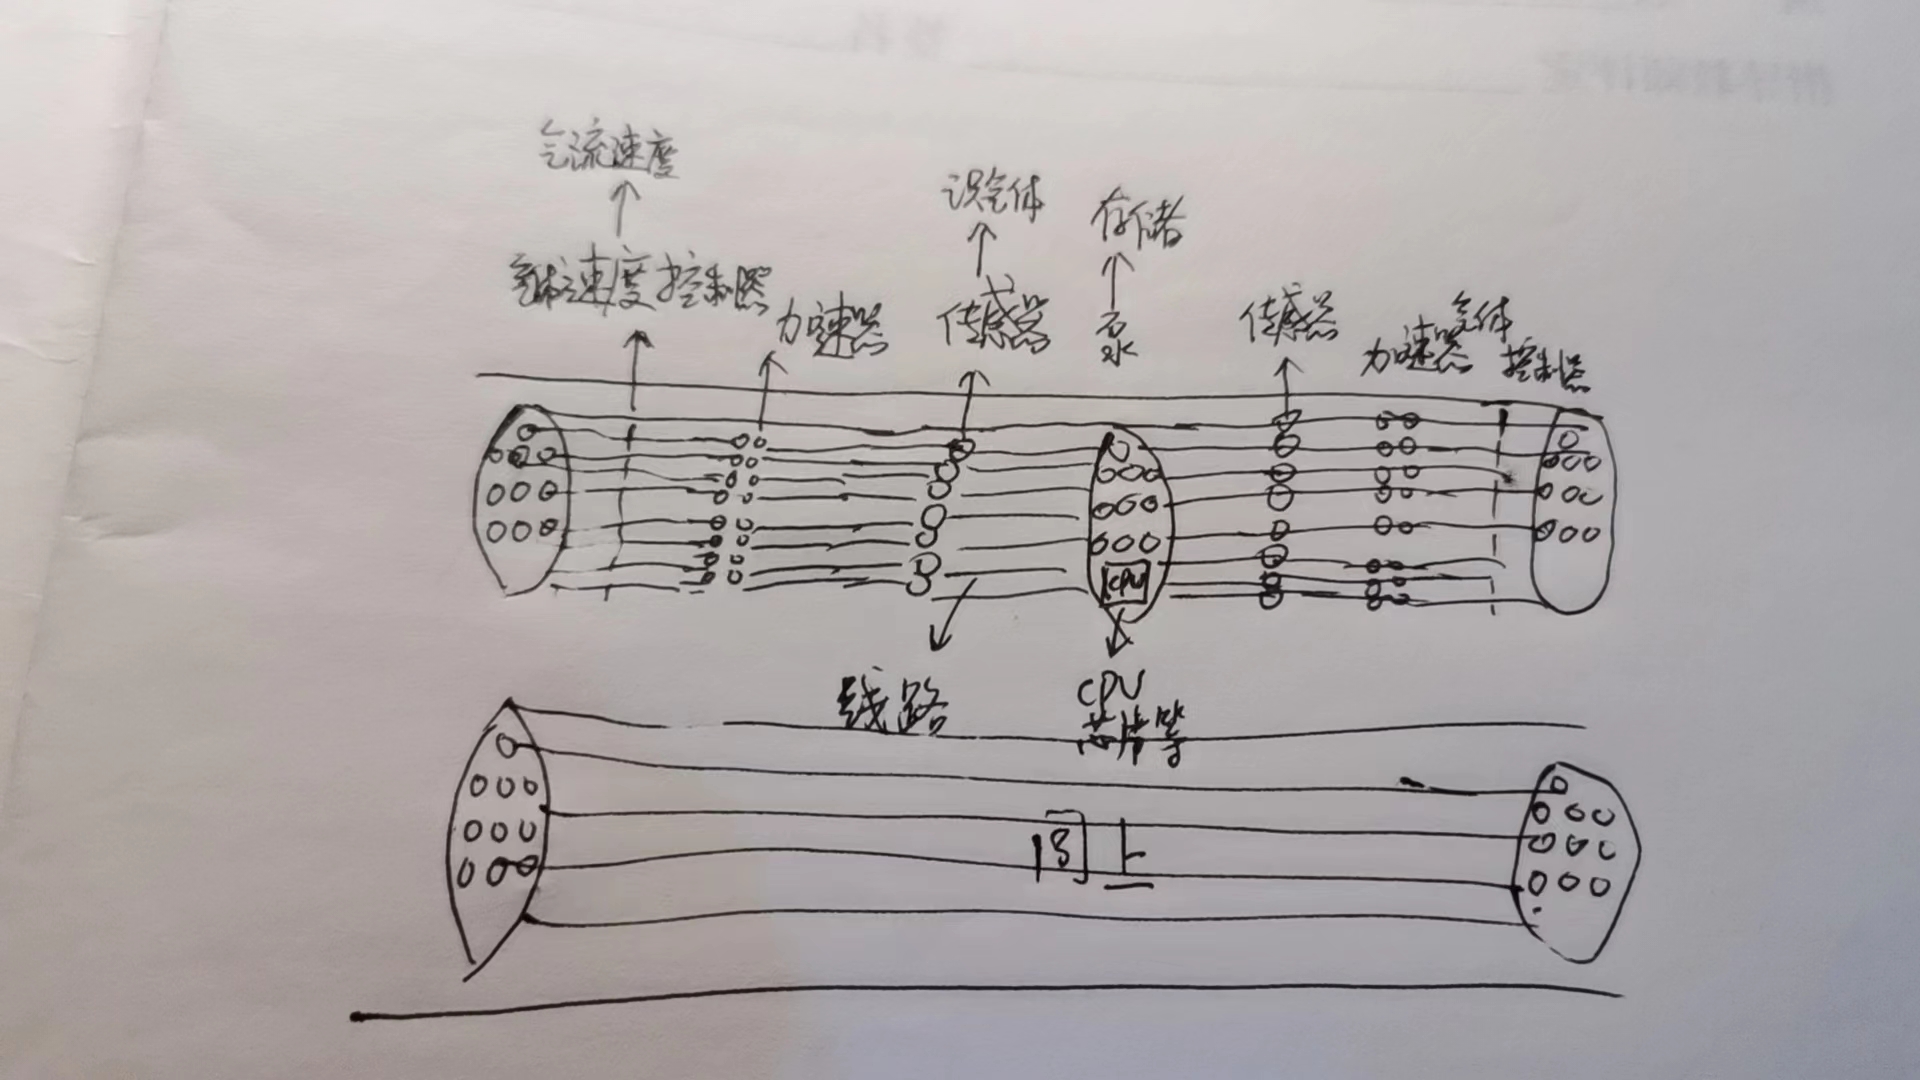 气流速度
气体速度控制器
加速器
识气体
传感器
存储
泵
传感器
加速器
气体
控制器
CPU
线路
CPU
芯片等